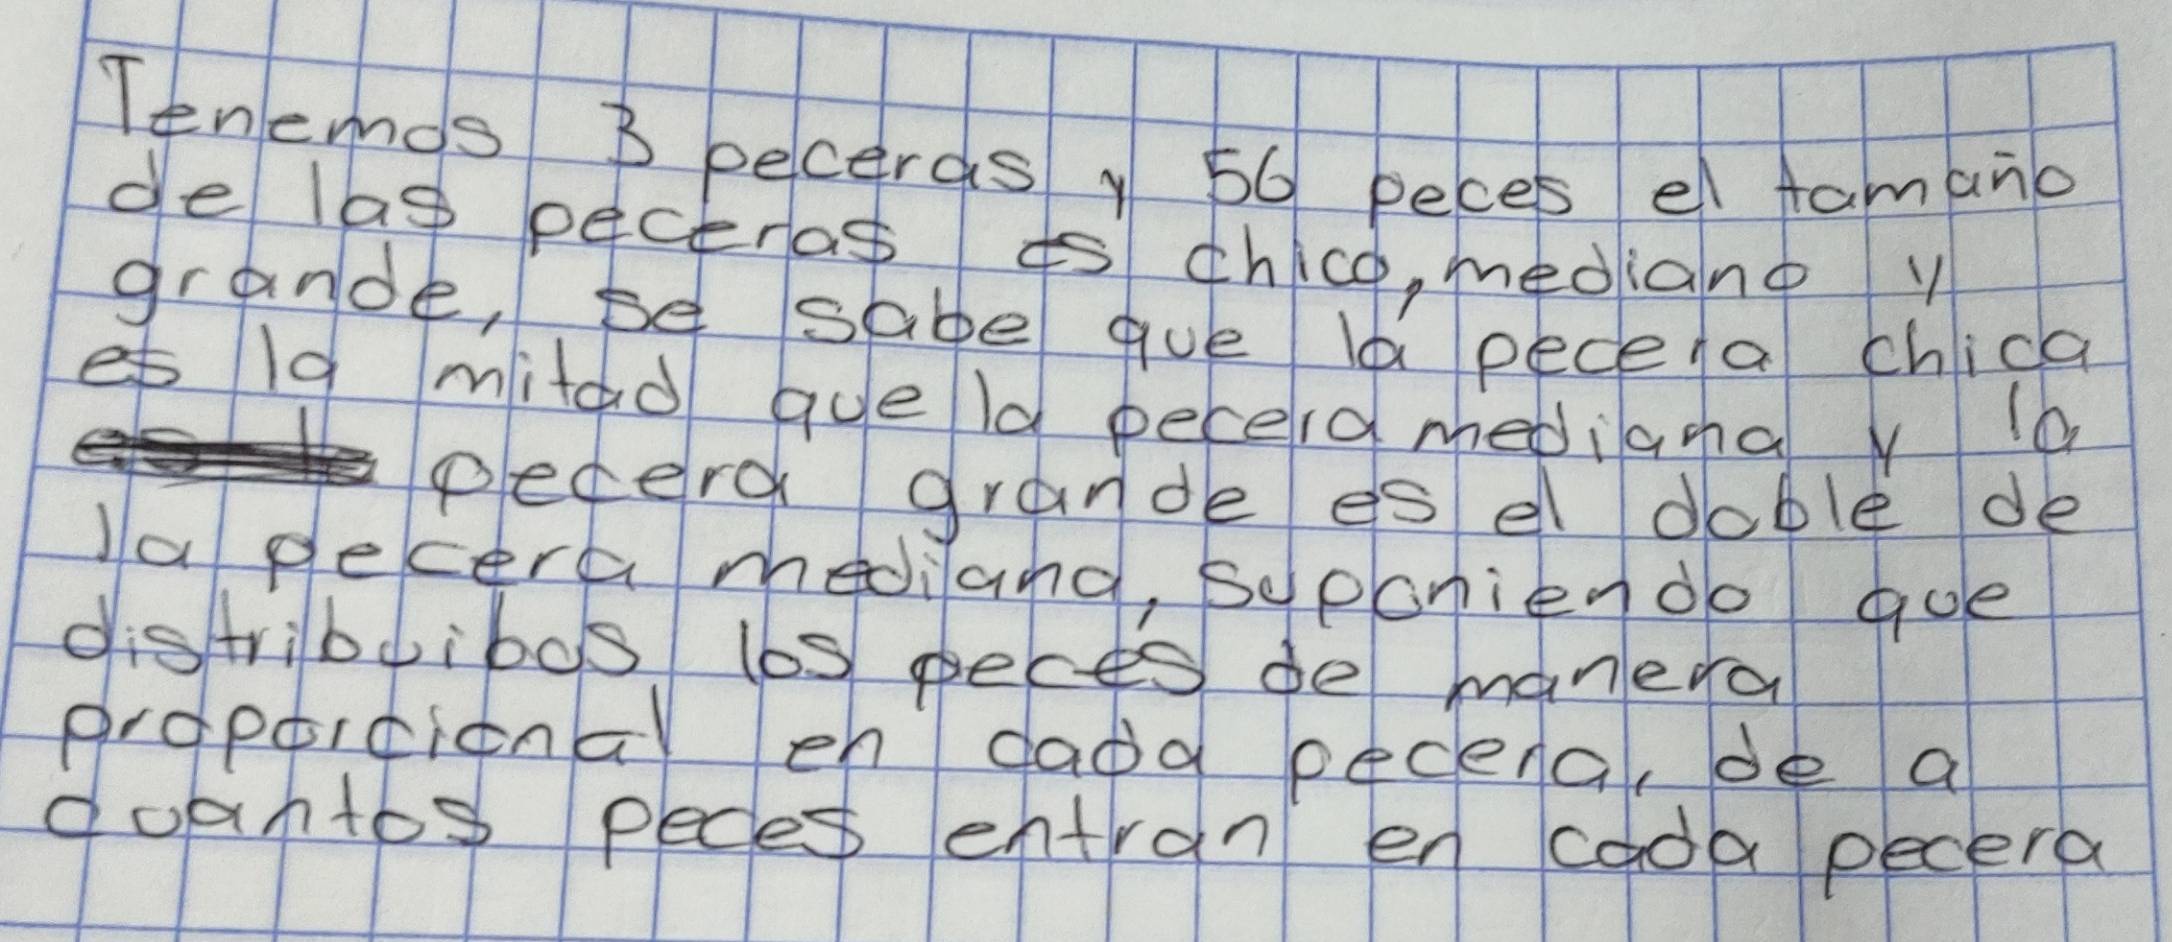 Tenemos 3 peceras y 56 peces el tamaño
de las peceras es chico, mediano y
grande, se sabe que la pecera chica
es la mitad que la pecera mediana y la
pecera grande es el doble de
la pecera mediana, suponiendo que
distribuibos los peces de manera
proporcional en cada pecera, de a
cuantos peces entran en cada pecera